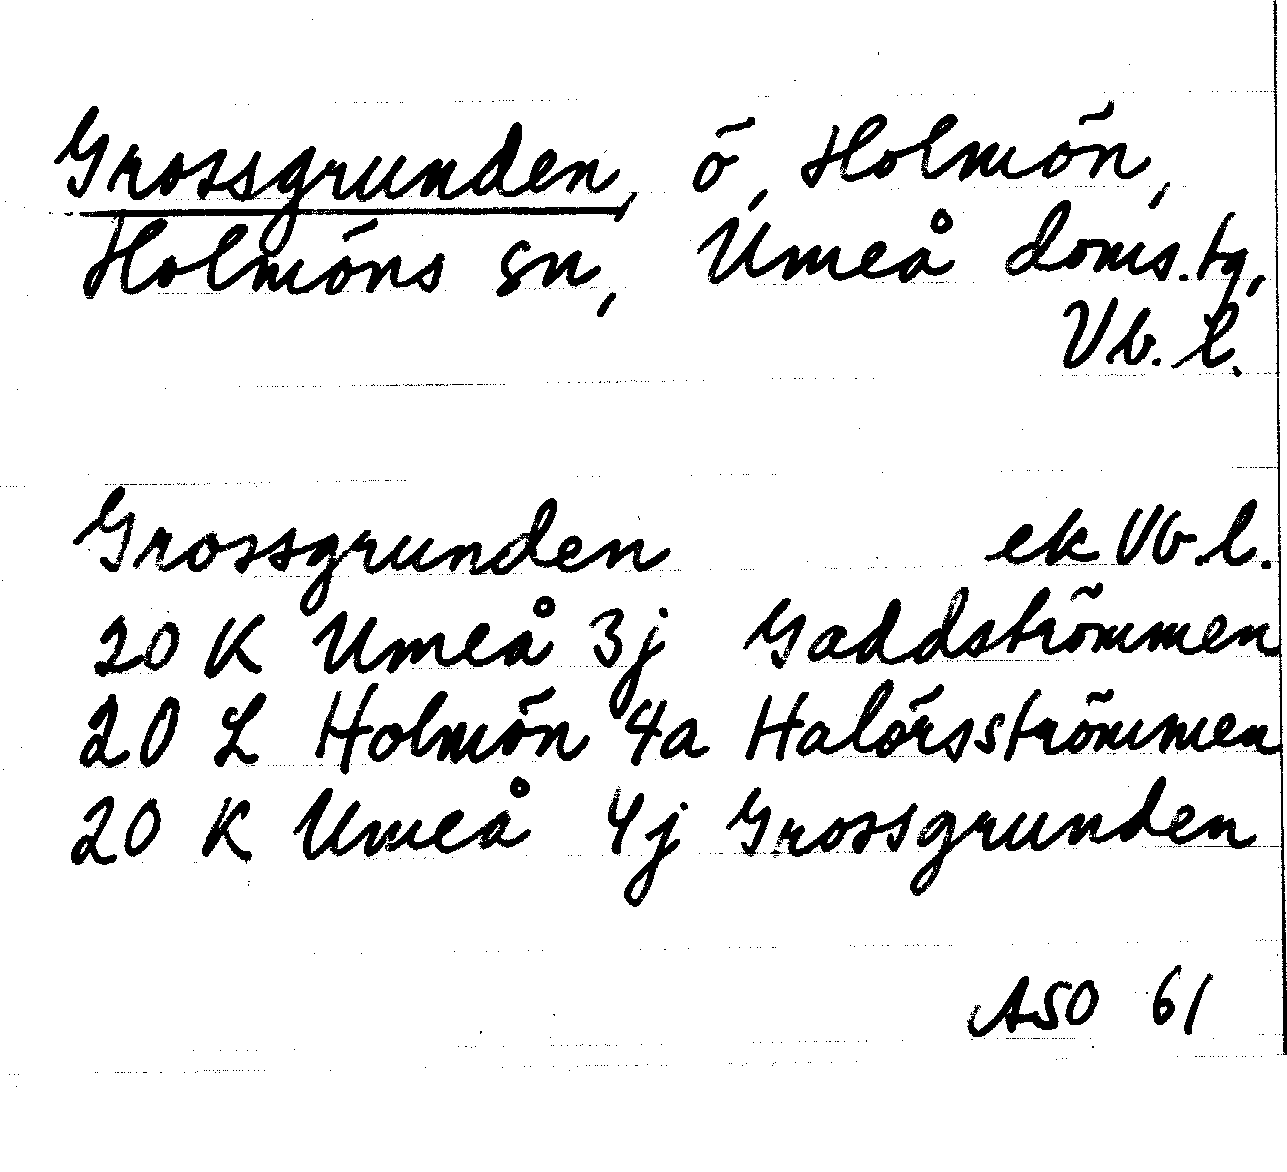 Grossgrunden, ö, Holmön,
Holmöns sn, Umeå doms.tg,
Vb. l.
Grossgrunden ek Vb. l.
20 K Umeå 3j Gaddströmmen
20 L Holmön 4a Halörsströmmen
20 K Umeå 4j Grossgrunden
ASO 61